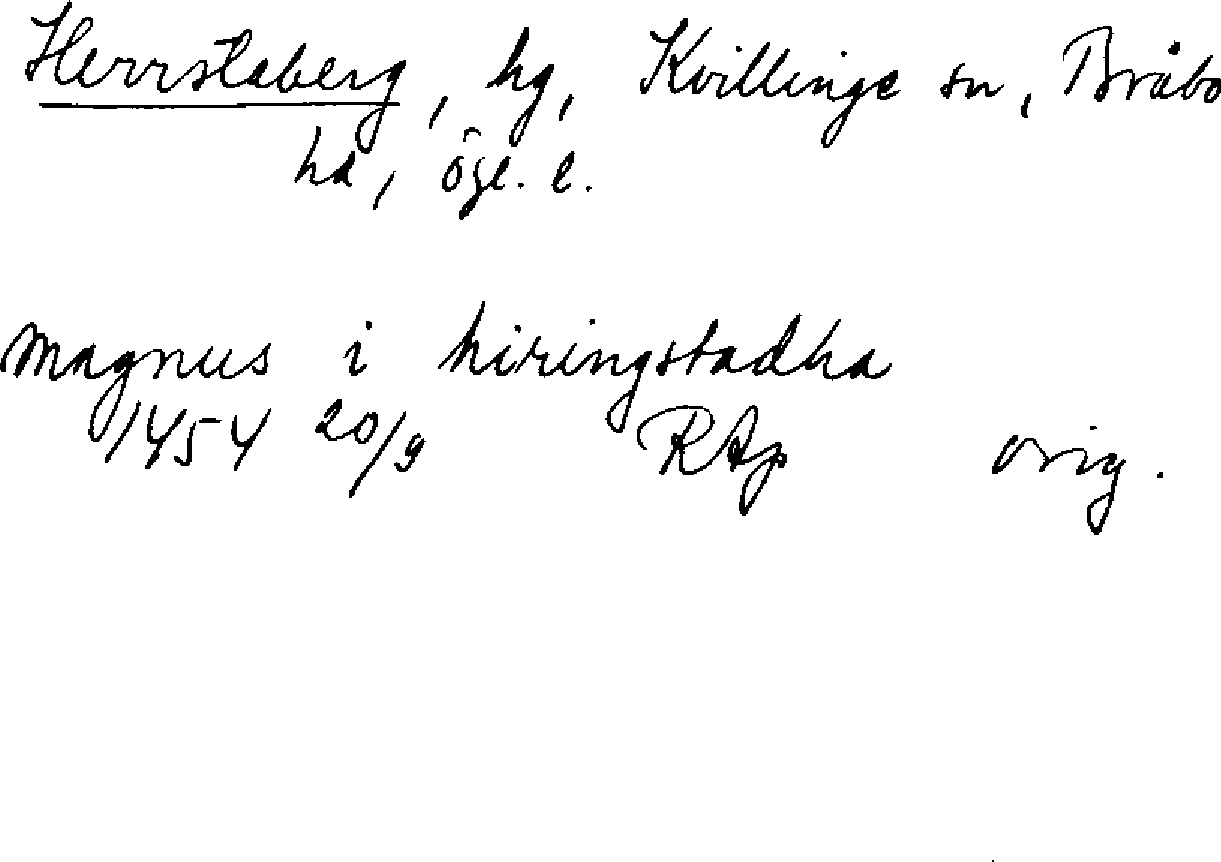 Herrstaberg, hg, Kvillinge sn, Bråbo
hd, ögl. l.
magnus i hiringstadha
1454 20/9 RAp orig.